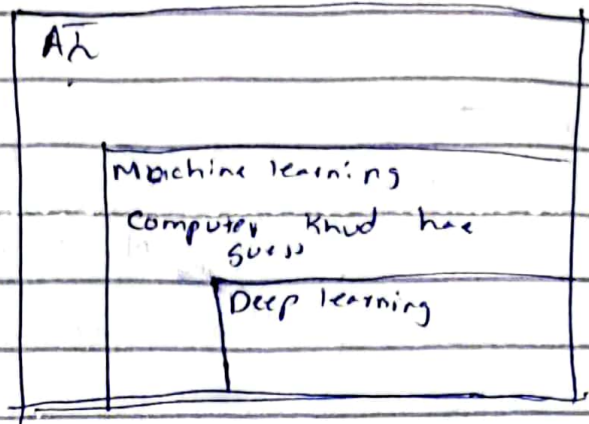 AI
Machine learning
Computer
guess
Deep learning